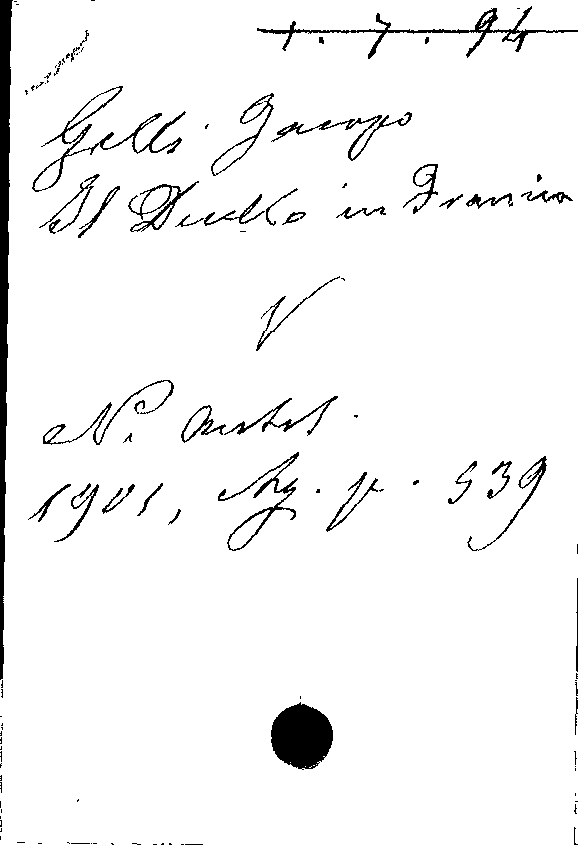 1.7.94
Gelli Jacopo
Il Duello in Francia
V
N. Antol.
1901, Mg. p. 539